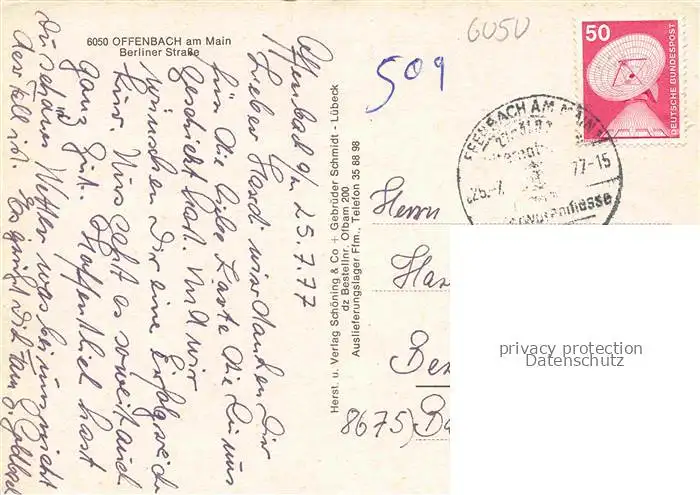 6050 OFFENBACH am Main
Berliner Straße
Offenbach a/M 25.7.77
Lieber Hardi wir danken Dir
für die liebe Karte die Du uns
geschickt hast. Und wir
wünschen Dir eine Erfolgreiche
Kur. Uns geht es soweit auch
ganz gut. Hoffentlich hast
Du schöne Wetter was bei uns nicht
der Fall ist. Es grüßt Dich
Herst. u. Verlag Schöning & Co + Gebrüder Schmidt - Lübeck
dz Bestellnr. Ofbam 200
Auslieferungslager Ffm., Telefon 35 88 98
6050
509
50
DEUTSCHE BUNDESPOST
OFFENBACH AM MAIN
77-15
Herrn
8675)
privacy protection
Datenschutz